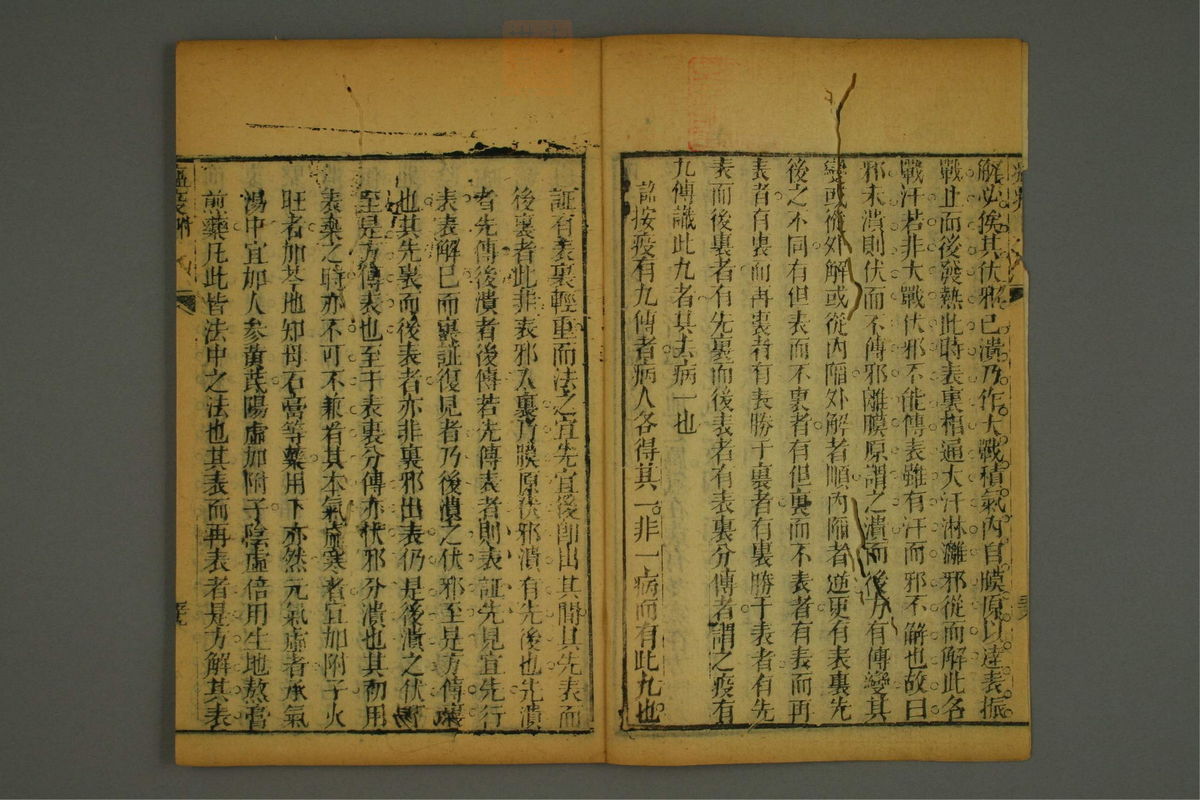 解必俟其伏邪已潰乃作大戰積氣內自膜原以達表振
戰止而後發熱此時表裏相通大汗淋漓邪從而解此名
戰汗若非大戰伏邪不能傳表雖有汗而邪不解也故曰
邪未潰則伏而不傳邪離膜原謂之潰而後方有傳變其
變或從外解或從內陷外解者順內陷者逆更有表裏先
後之不同有但表而不裏者有但裏而不表者有表而再
表者有裏而再裏者有表勝于裏者有裏勝于表者有先
表而後裏者有先裏而後表者有表裏分傳者謂之疫有
九傳識此九者其去病一也
按疫有九傳者病人各得其一非一病而有此九也
証有表裏輕重而法之宜先宜後即出其間其先表而
後裏者此非表邪入裏乃膜原伏邪潰有先後也先潰
者先傳後潰者後傳若先傳表者則表証先見宜先行
表表解已而裏証復見者乃後潰之伏邪至是方傳裏
也其先裏而後表者亦非裏邪出表仍是後潰之伏邪
至是方傳表也至于表裏分傳亦伏邪分潰也其初用
表藥之時亦不可不兼看其本氣虛寒者宜加附子火
旺者加芩地知母石膏等藥用下亦然元氣虛者承氣
湯中宜加人參黃芪陽虛加附子陰虛倍用生地熬當
前藥凡此皆法中之法也其表而再表者是方解其表